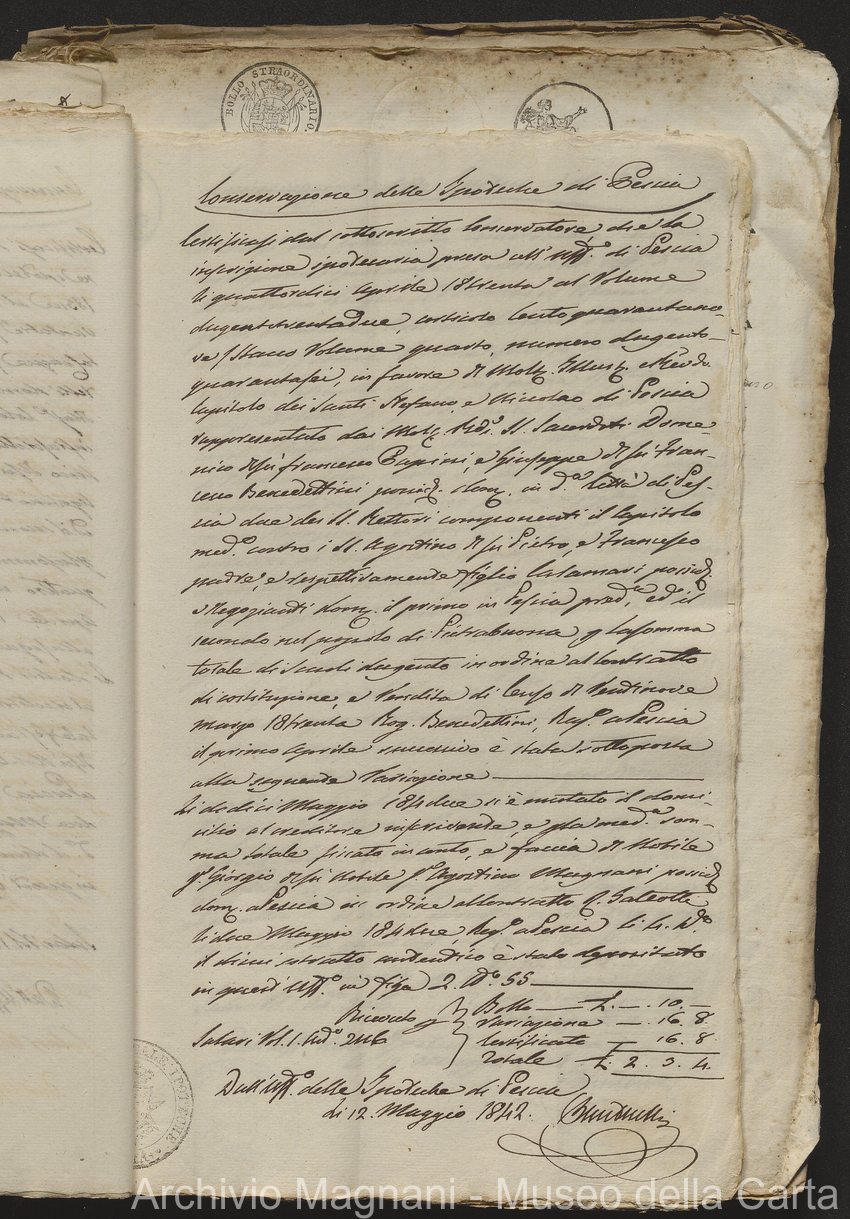 BOLLO STRAORDINARIO
Conservazione delle Ipoteche di Pescia
Certificasi dal sottoscritto Conservatore, che la
inscrizione ipotecaria presa all' Uff.º di Pescia
li quattordici Aprile 18trenta al Volume
dugentotrentadue, articolo Centoquarantano-
ve, Stanco Volume quarto, numero dugento-
quarantasei, in favore di Molt. Illust. e Revdo.
Capitolo dei Santi Stefano, e Niccolao di Pescia
rappresentato dai Molt. Rdi. SS. Sacerdoti Dome-
nico di fu Francesco Papini, e Giuseppe di fu Fran-
cesco Benedettini possid. dom. in d.ª Città di Pes-
cia due dei SS. Rettori componenti il Capitolo
med.º contro i SS. Agostino di fu Pietro, e Francesco
padre, e respettivamente figlio Calamari possid.
e Negozianti dom. il primo in Pescia pred.ª, ed il
secondo nel popolo di Pietrabuona p la somma
totale di Scudi dugento in ordine al Contratto
di costituzione, e Vendita di Censo di Ventinove
marzo 18trenta Rog. Benedettini, Reg.º a Pescia
il primo Aprile successivo è stata sottoposta
alla seguente Variazione
Li dodici Maggio 184due si è mutato il domi-
cilio al creditore inscrivente, e p la med.ª som-
ma totale in conto, e faccia di Nobile
Sr. Giorgio di fu Nobile Sr. Agostino Magnani possid.
dom. a Pescia in ordine al Contratto R. Galeotti
li due Maggio 184due, Reg.º a Pescia li 4. do.
il di cui estratto autentico è stato depositato
in quest' Uff.º in filza 2. N.º 55
Ricevuto p Bollo £ —. 10. —
Variazione —. 16. 8
Salari Vol. 1. N.º 246 Certificato —. 16. 8.
Totale £ 2. 3. 4.
Dall' Uff.º delle Ipoteche di Pescia
li 12. Maggio 1842.
Archivio Magnani - Museo della Carta